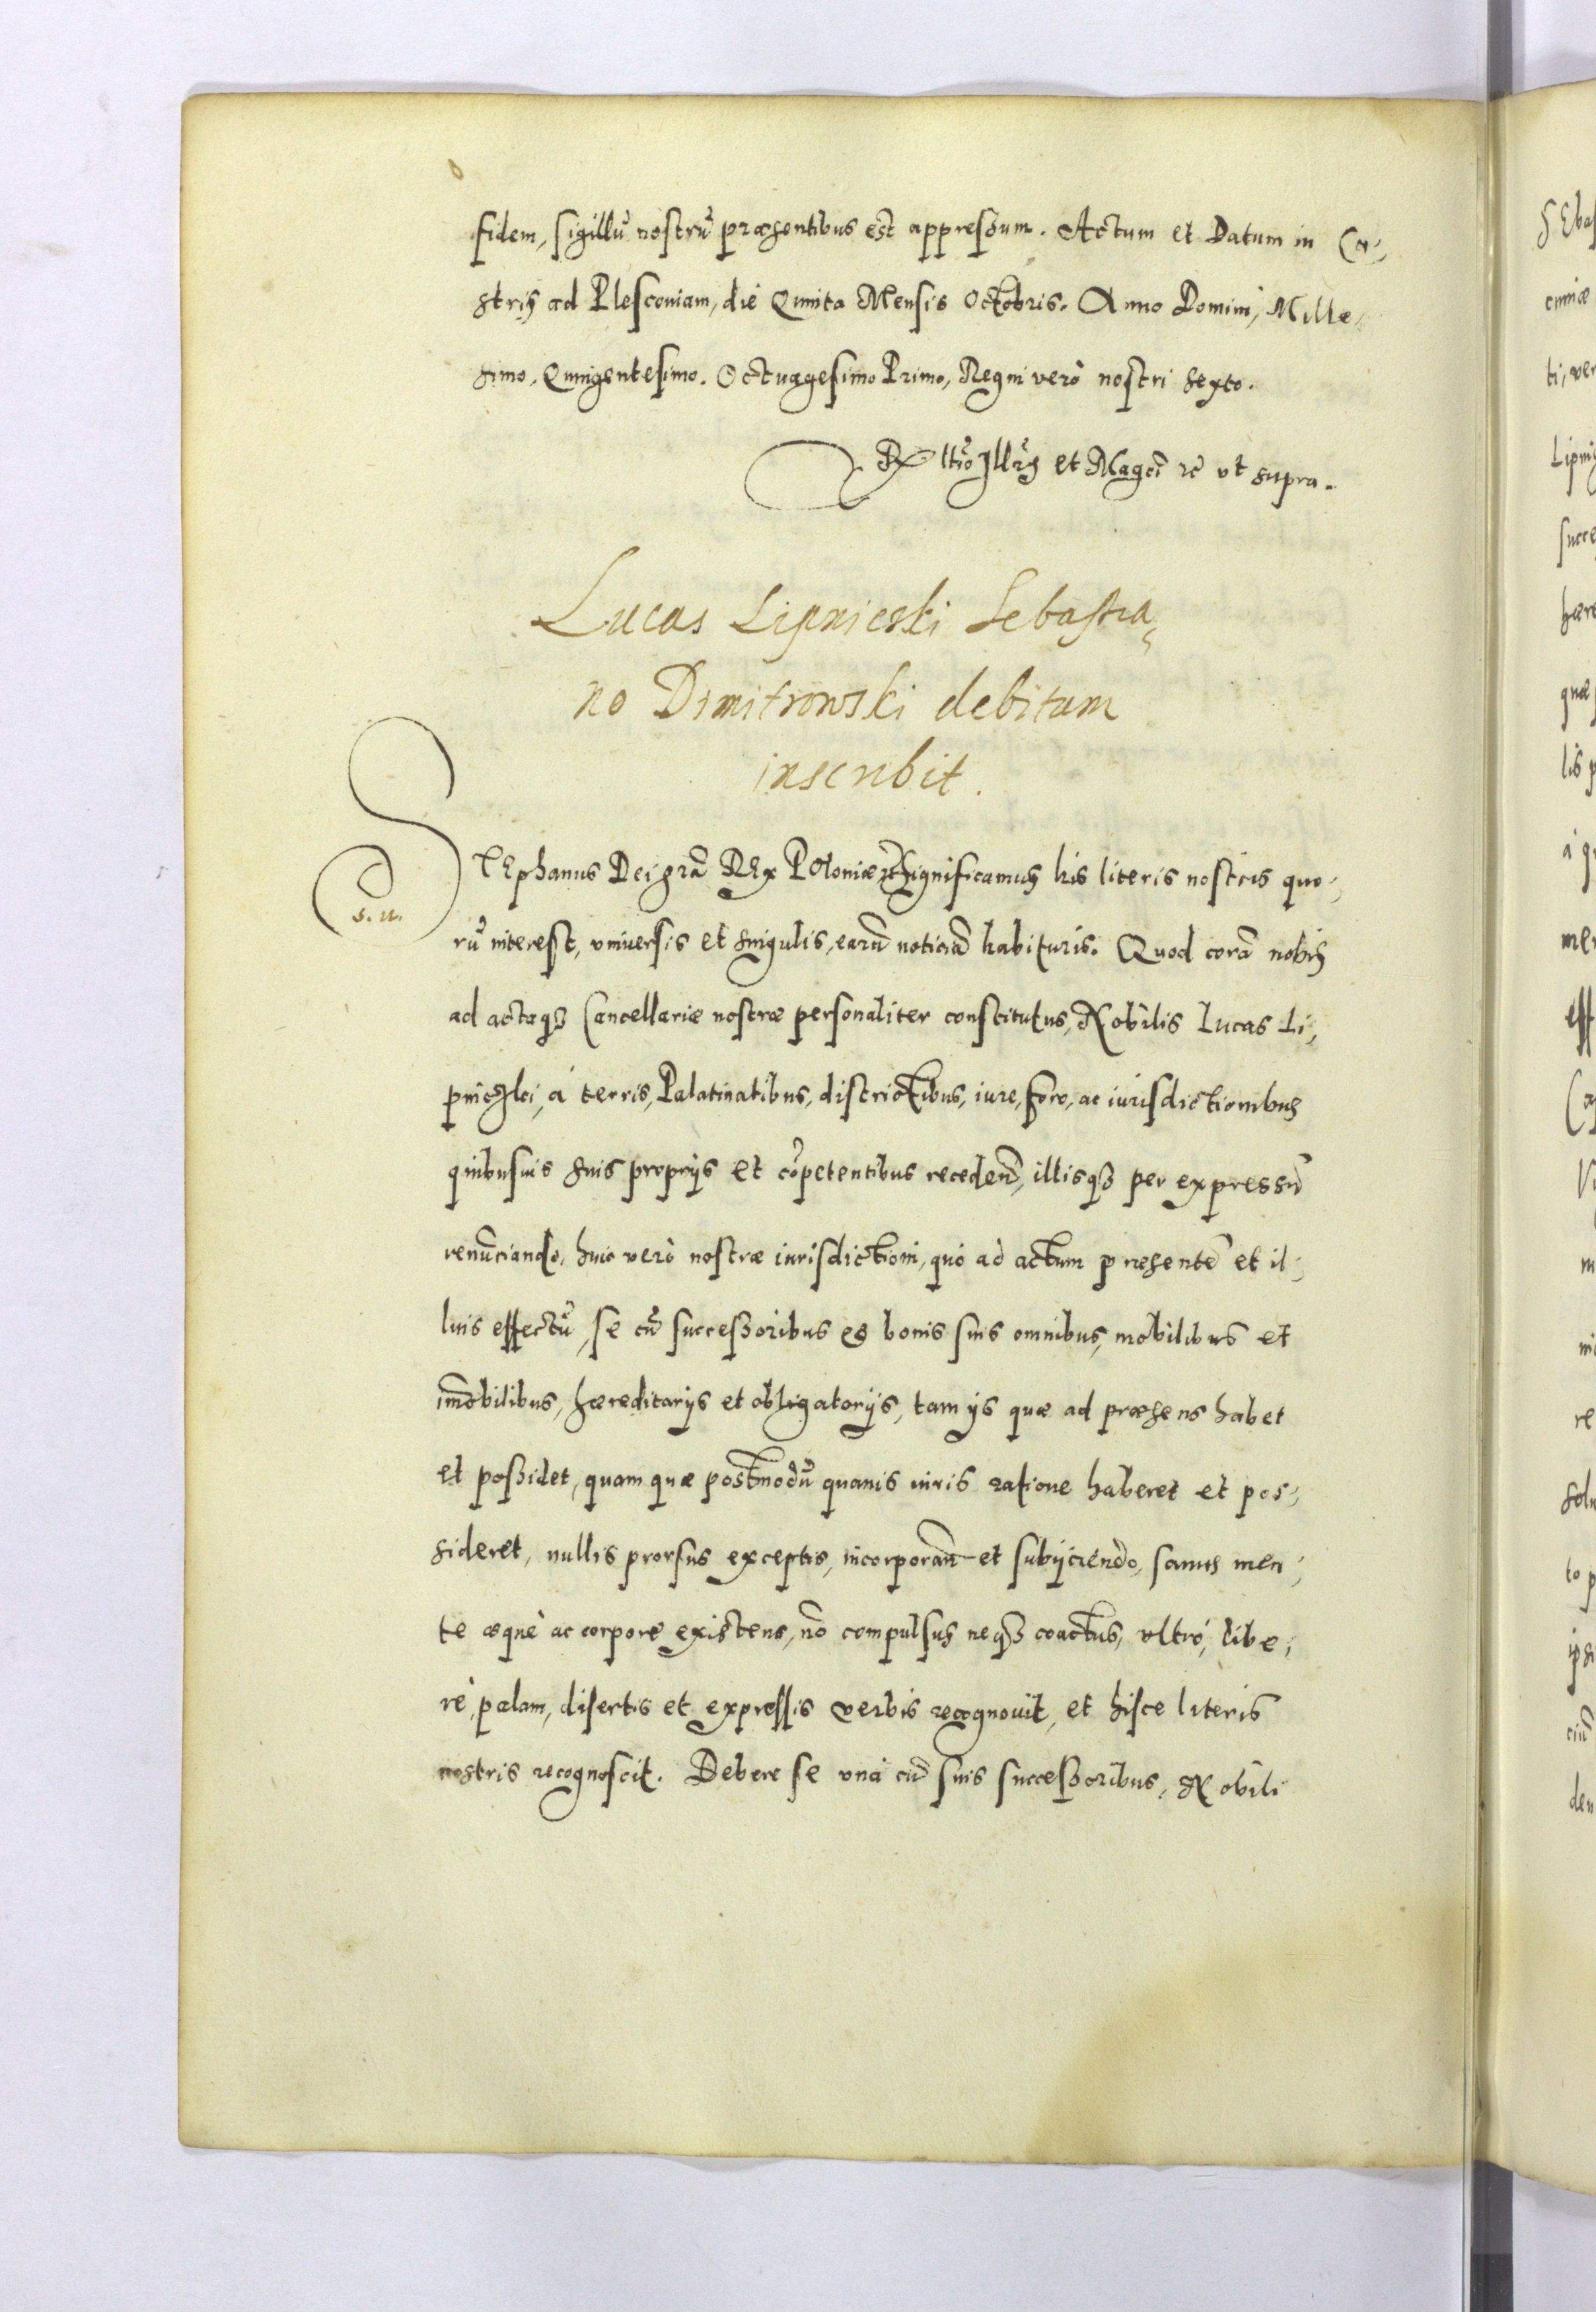 fidem, sigillũ nostrũ præsentibus est appressum. Actum et Datum in Ca-
stris ad Plesconiam, die Quinta Mensis Octobris. Anno Domini, Mille-
simo, Quingentesimo. Octuagesimo Primo, Regni verò nostri sexto.
Rltio Illris et Magci rc vt supra.
Lucas Lipnicski Sebastia-
no Dmitrowski debitum
inscribit.
STEphanus Dei grã REx Poloniæ rc Significamus his literis nostris quo-
s. n.
rũ interest, vniversis et singulis, earũ noticiã habituris. Quod corã nobis
ad actaqȝ Cancellariæ nostræ personaliter constitutus, Nobilis Lucas Li-
pniczki, à terris, Palatinatibus, districtibus, iure, foro, ac iurisdictionibus
quibusuis suis proprijs et cõpetentibus recedeñ, illisqȝ per expressũ
renũciando, huic verò nostræ iurisdictioni, quò ad actum præsentẽ et il-
lius effectũ, se cũ successoribus et bonis suis omnibus, mobilibus et
im̃obilibus, hæreditarijs et obligatorijs, tam ijs quæ ad præsens habet
et possidet, quam quæ postmodũ quauis iuris ratione haberet et pos-
sideret, nullis prorsus exceptis, incorporañ et subijciendo, sanus men-
te æquè ac corpore existens, nõ compulsus neqȝ coactus, vltrò, libe-
rè, palam, disertis et expressis verbis recognouit, et hisce literis
nostris recognoscit. Debere se vnà cũ suis successoribus, Nobili